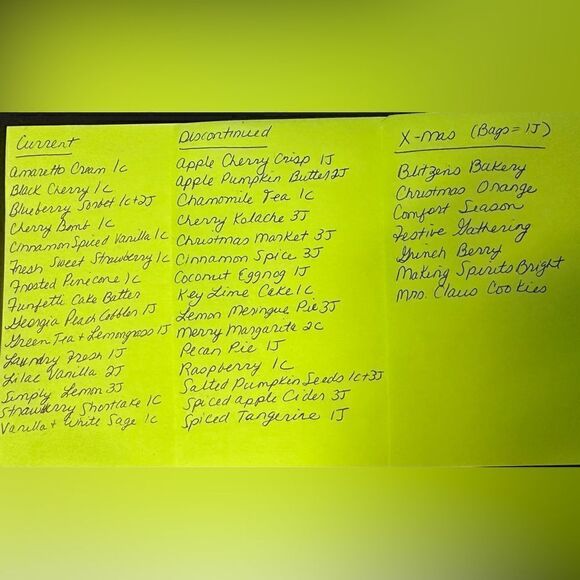 Current
Amaretto Cream 1c
Black Cherry 1c
Blueberry Sorbet 1c+2J
Cherry Bomb 1c
Cinnamon Spiced Vanilla 1c
Fresh Sweet Strawberry 1c
Frosted Pinecone 1c
Funfetti Cake Batter
Georgia Peach Cobbler 1J
Green Tea + Lemongrass 1J
Laundry Fresh 1J
Lilac Vanilla 2J
Simply Lemon 3J
Strawberry Shortcake 1c
Vanilla + White Sage 1c
Discontinued
Apple Cherry Crisp 1J
Apple Pumpkin Butter 2J
Chamomile Tea 1c
Cherry Kolache 3J
Christmas Market 3J
Cinnamon Spice 3J
Coconut Eggnog 1J
Key Lime Cake 1c
Lemon Meringue Pie 3J
Merry Margarita 2c
Pecan Pie 1J
Raspberry 1c
Salted Pumpkin Seeds 1c+3J
Spiced Apple Cider 3J
Spiced Tangerine 1J
X-mas (Bags = 1J)
Blitzens Bakery
Christmas Orange
Comfort Season
Festive Gathering
Grinch Berry
Making Spirits Bright
Mrs. Claus Cookies